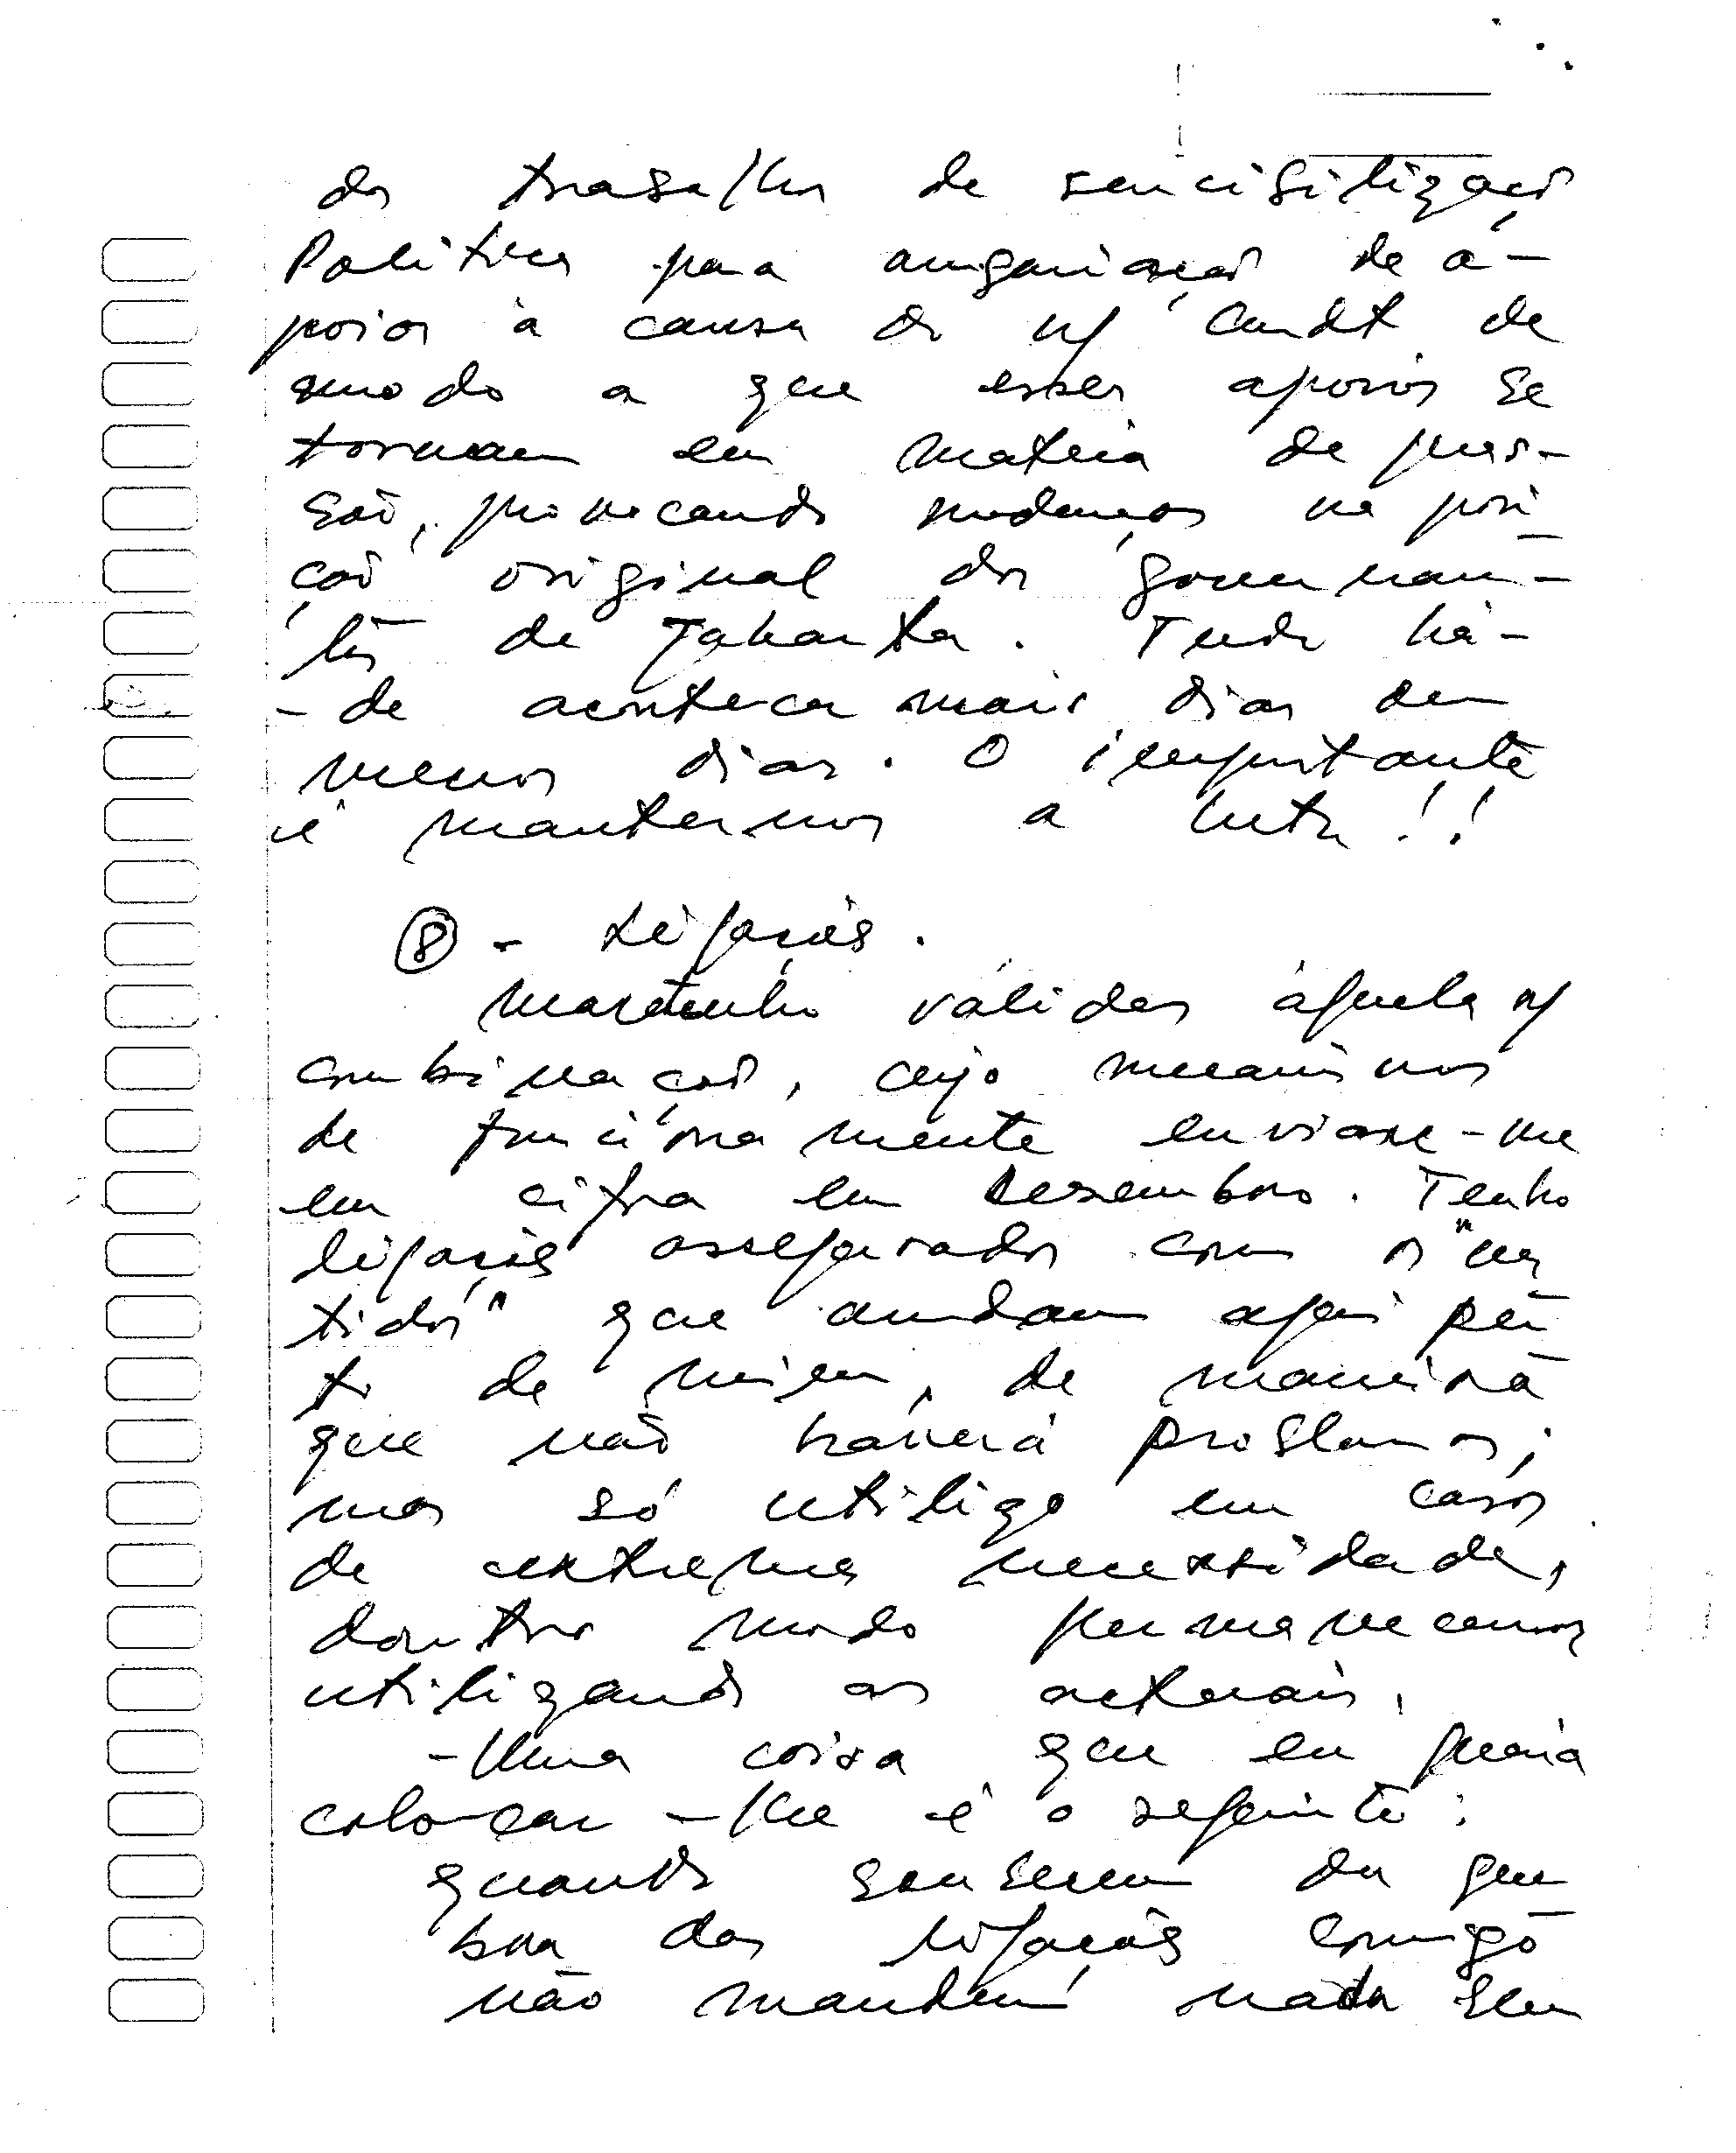 do trabalho de sencibilização
Politica para angariação de a-
poios à causa do n/ Cmdt de
modo a que esses apoios se
tornem em materia de pres-
são, provocando mudanças na posi
ção original dos governan-
tes de Jakarta. Tudo há-
-de acontecer mais dias ou
menos dias. O importante
é mantermos a luta!!
⑧ - Ligações.
Mantenho válida áquela n/
combinação, cujo mecanismos
de funcionamente enviare-me
em cifra em Dezembro. Tenho
ligações asseguradas com os "ves
tidos" que andam aqui per
to de mim, de maneira
que não haverá problemas;
mas só utilizo em casos
de extrema necessidade,
doutro modo permanecemos
utilizando as actuais.
-Uma coisa que eu queria
colocar-lhe é o seguinte:
quando souberem da que
bra das ligações comigo
não mandem nada sem